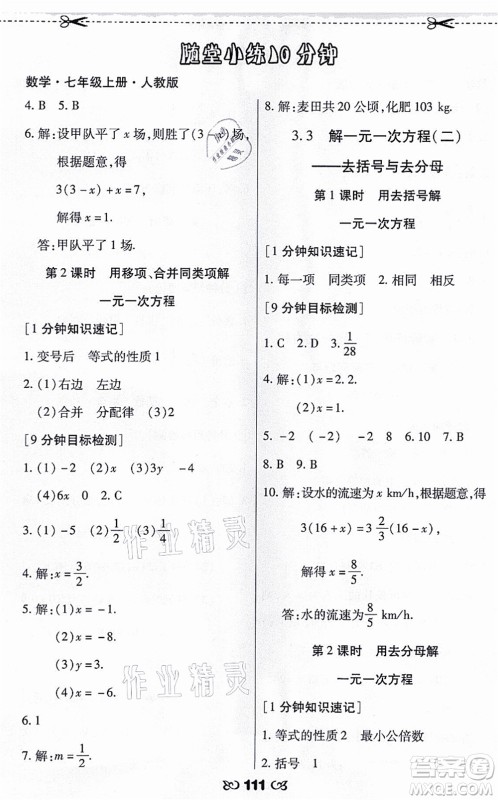 随堂小练10分钟
数学·七年级上册·人教版
4. B  5. B
6. 解：设甲队平了 x 场，则胜了(3－x)场，
根据题意，得
3(3－x)＋x＝7，
解得 x＝1.
答：甲队平了 1 场.
第 2 课时  用移项、合并同类项解
一元一次方程
[1 分钟知识速记]
1. 变号后  等式的性质 1
2. (1)右边  左边
(2)合并  分配律
[9 分钟目标检测]
1. (1)－2  (2)x  (3)3y  －4
(4)6x  0  2. C
3. (1)－5  (2)1/2  (3)1/2
4. 解：x＝3/2.
5. 解：(1)x＝－1.
(2)x＝－8.
(3)x＝4.
(4)x＝2.
6. 1
7. 解：m＝1/2.
8. 解：麦田共 20 公顷，化肥 103 kg.
3.3  解一元一次方程(二)
——去括号与去分母
第 1 课时  用去括号解
一元一次方程
[1 分钟知识速记]
1. 每一项  同类项  2. 相同  相反
[9 分钟目标检测]
1. C  2. D  3. 1/28
4. 解：(1)x＝2.2.
(2)x＝10.
5. －2  (－2)  －2  8  6. 10  7. B
8. B  9. B
10. 解：设水的流速为 x km/h，根据题意，得
3(16＋x)＝3 2/3 (16－x)，
解得 x＝8/5.
答：水的流速为 8/5 km/h.
第 2 课时  用去分母解
一元一次方程
[1 分钟知识速记]
1. 等式的性质 2  最小公倍数
2. 括号  1
111
作业精灵
作业精灵
答案圈
MXQE.COM